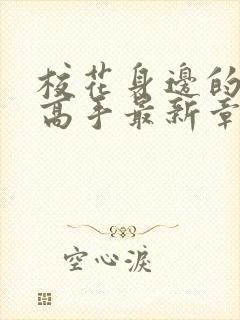 校花身邊的
高手最新章
空心淚